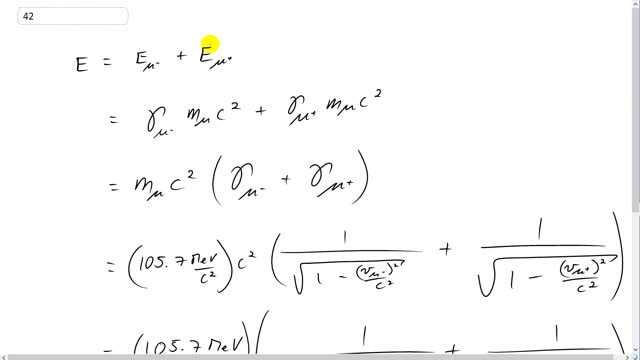 42
E = E_μ- + E_μ+
= γ_μ- m_μ c² + γ_μ+ m_μ c²
= m_μ c² (γ_μ- + γ_μ+)
= (105.7 MeV/c²) c² (1/√(1 - (v_μ-)²/c²) + 1/√(1 - (v_μ+)²/c²))
= (105.7 MeV) (1 + 1